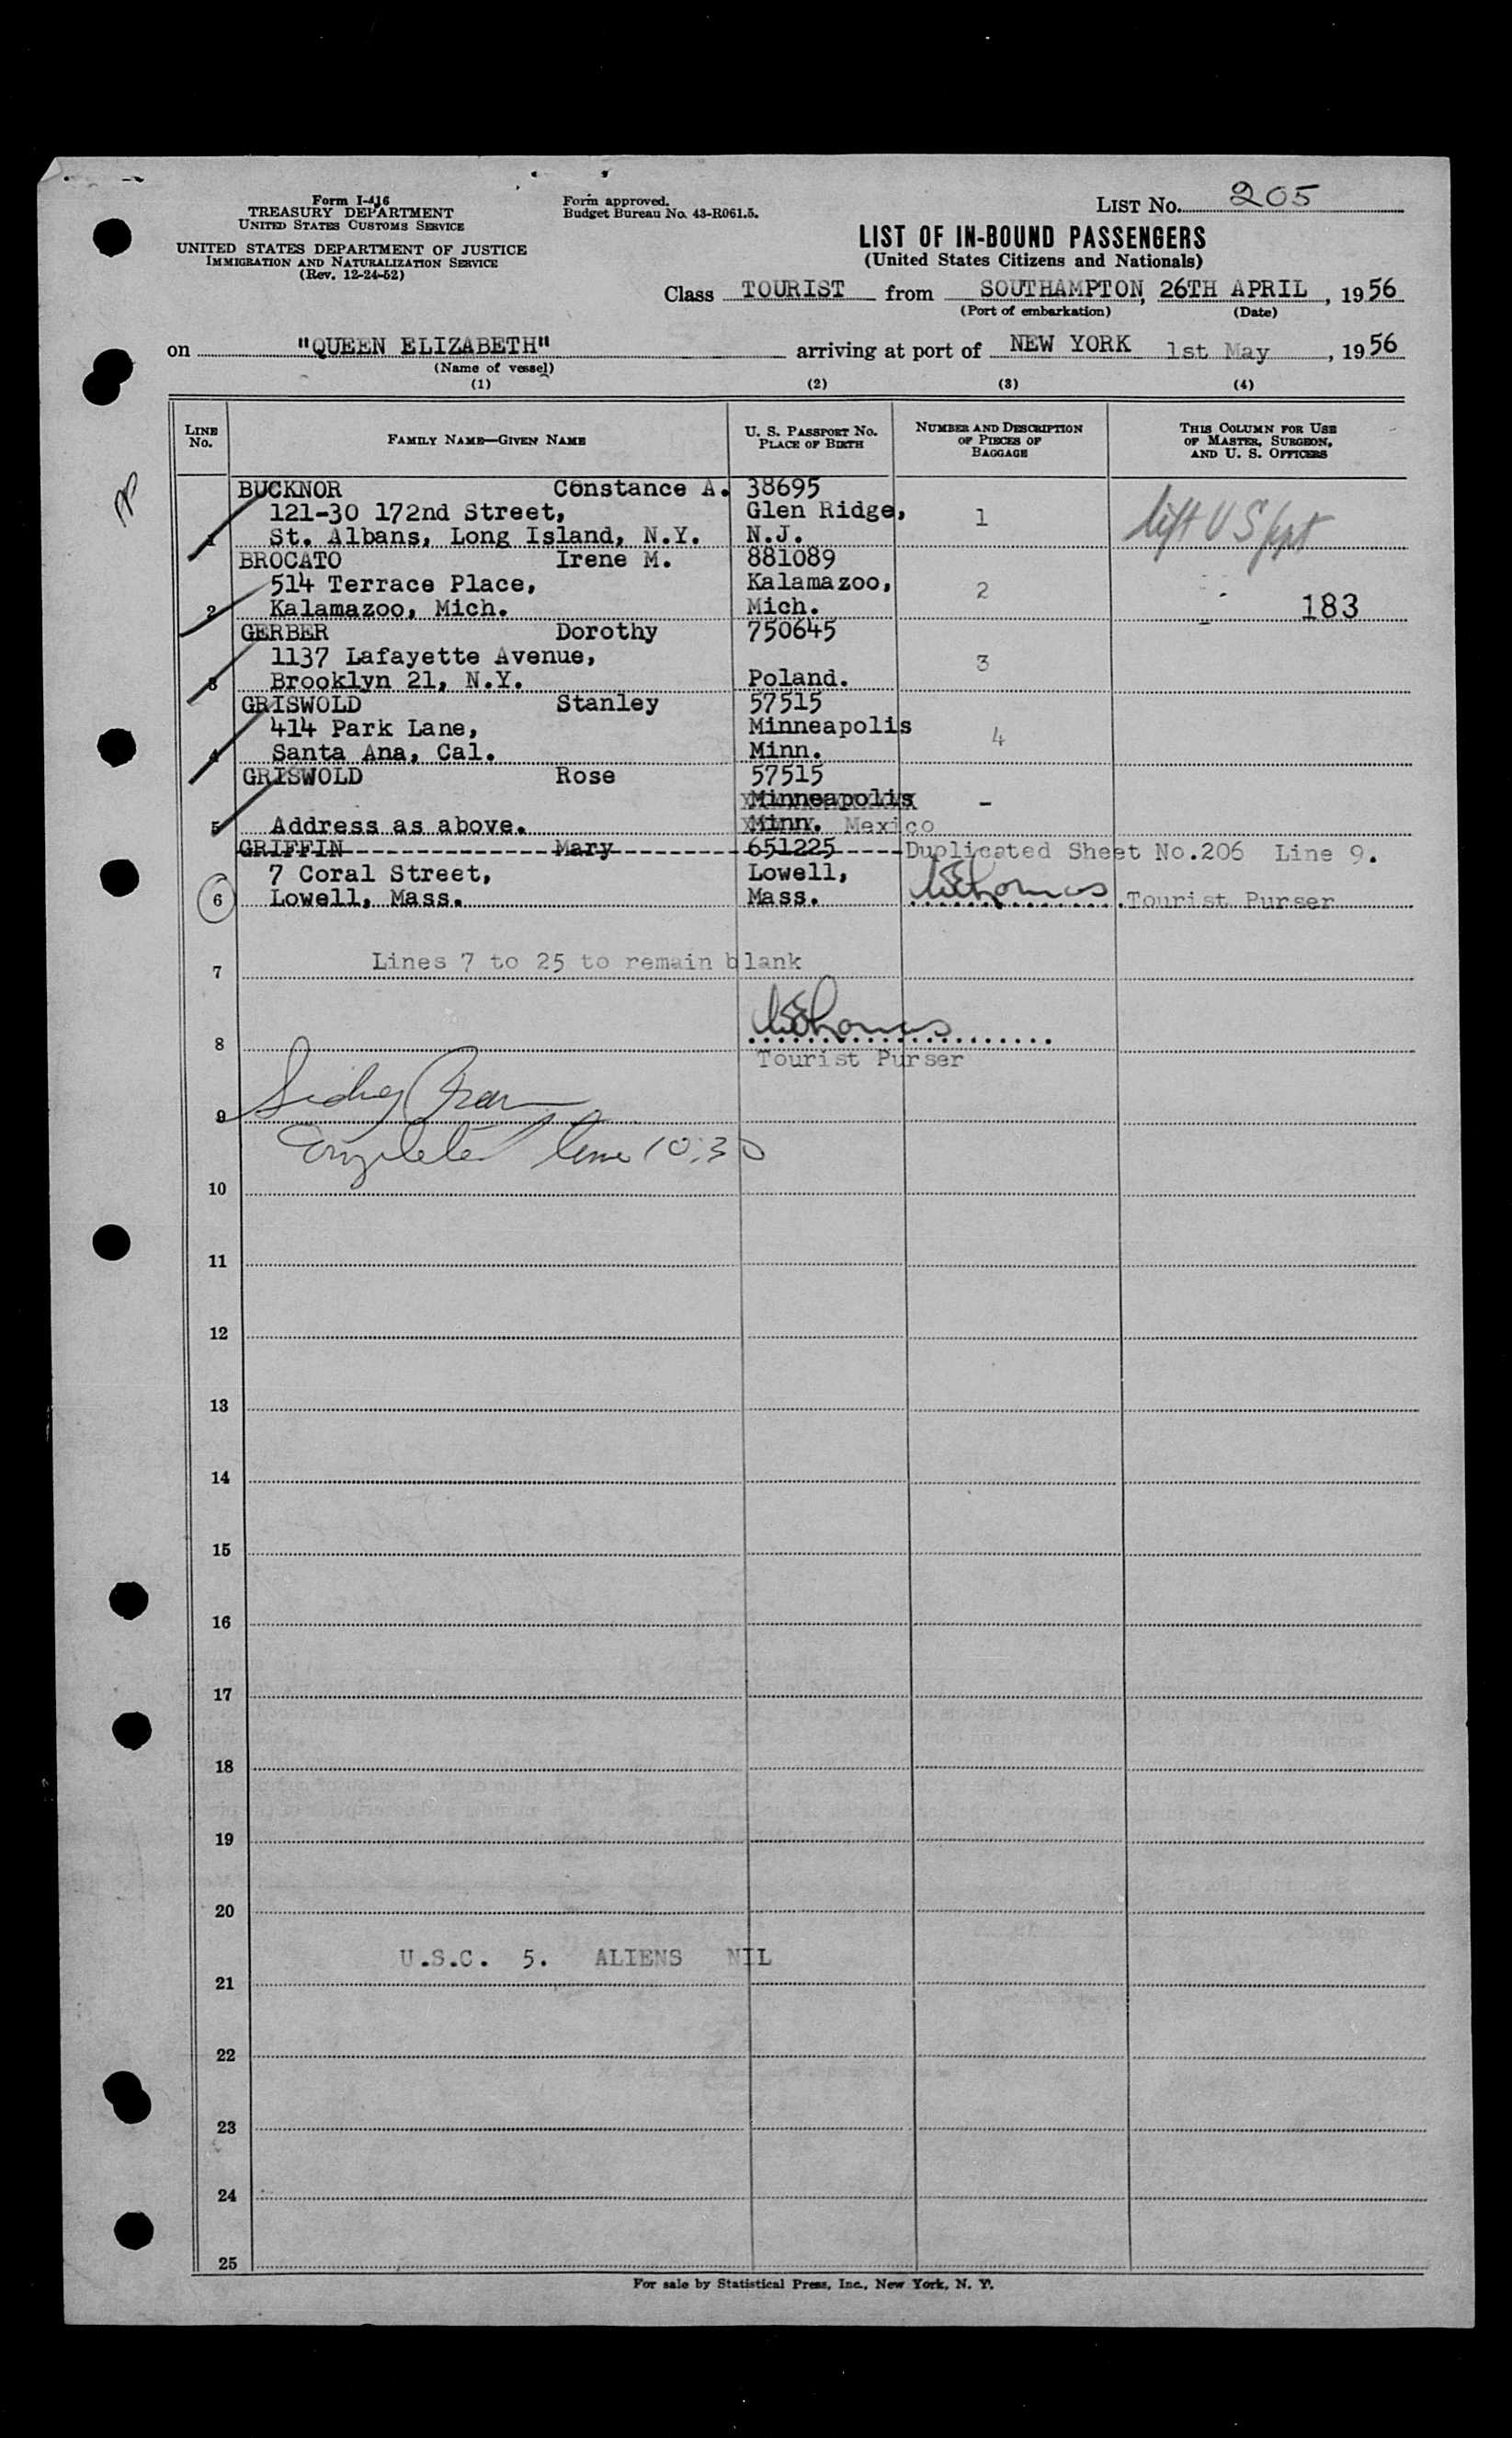 Form I-416
TREASURY DEPARTMENT
UNITED STATES CUSTOMS SERVICE
UNITED STATES DEPARTMENT OF JUSTICE
IMMIGRATION AND NATURALIZATION SERVICE
(Rev. 12-24-52)
Form approved.
Budget Bureau No. 43-R061.5.
LIST No. 205
LIST OF IN-BOUND PASSENGERS
(United States Citizens and Nationals)
Class TOURIST from SOUTHAMPTON, 26TH APRIL, 1956
(Port of embarkation) (Date)
on "QUEEN ELIZABETH" arriving at port of NEW YORK 1st May, 1956
(Name of vessel)
(1) (2) (3) (4)
LINE No. FAMILY NAME—GIVEN NAME U. S. PASSPORT No. PLACE OF BIRTH NUMBER AND DESCRIPTION OF PIECES OF BAGGAGE THIS COLUMN FOR USE OF MASTER, SURGEON, AND U. S. OFFICERS
BUCKNOR Constance A. 38695
121-30 172nd Street, Glen Ridge, 1 lift US ppt
1 St. Albans, Long Island, N.Y. N.J.
BROCATO Irene M. 881089
514 Terrace Place, Kalamazoo, 2
2 Kalamazoo, Mich. Mich. 183
GERBER Dorothy 750645
1137 Lafayette Avenue, 3
3 Brooklyn 21, N.Y. Poland.
GRISWOLD Stanley 57515
414 Park Lane, Minneapolis 4
4 Santa Ana, Cal. Minn.
GRISWOLD Rose 57515
Minneapolis -
5 Address as above. Minn. Mexico
GRIFFIN Mary 651225 Duplicated Sheet No.206 Line 9.
7 Coral Street, Lowell,
6 Lowell, Mass. Mass. Tourist Purser
7 Lines 7 to 25 to remain blank
8
Tourist Purser
9
Completed time 10:30
10
11
12
13
14
15
16
17
18
19
20
U.S.C. 5. ALIENS NIL
21
22
23
24
25
For sale by Statistical Press, Inc., New York, N. Y.